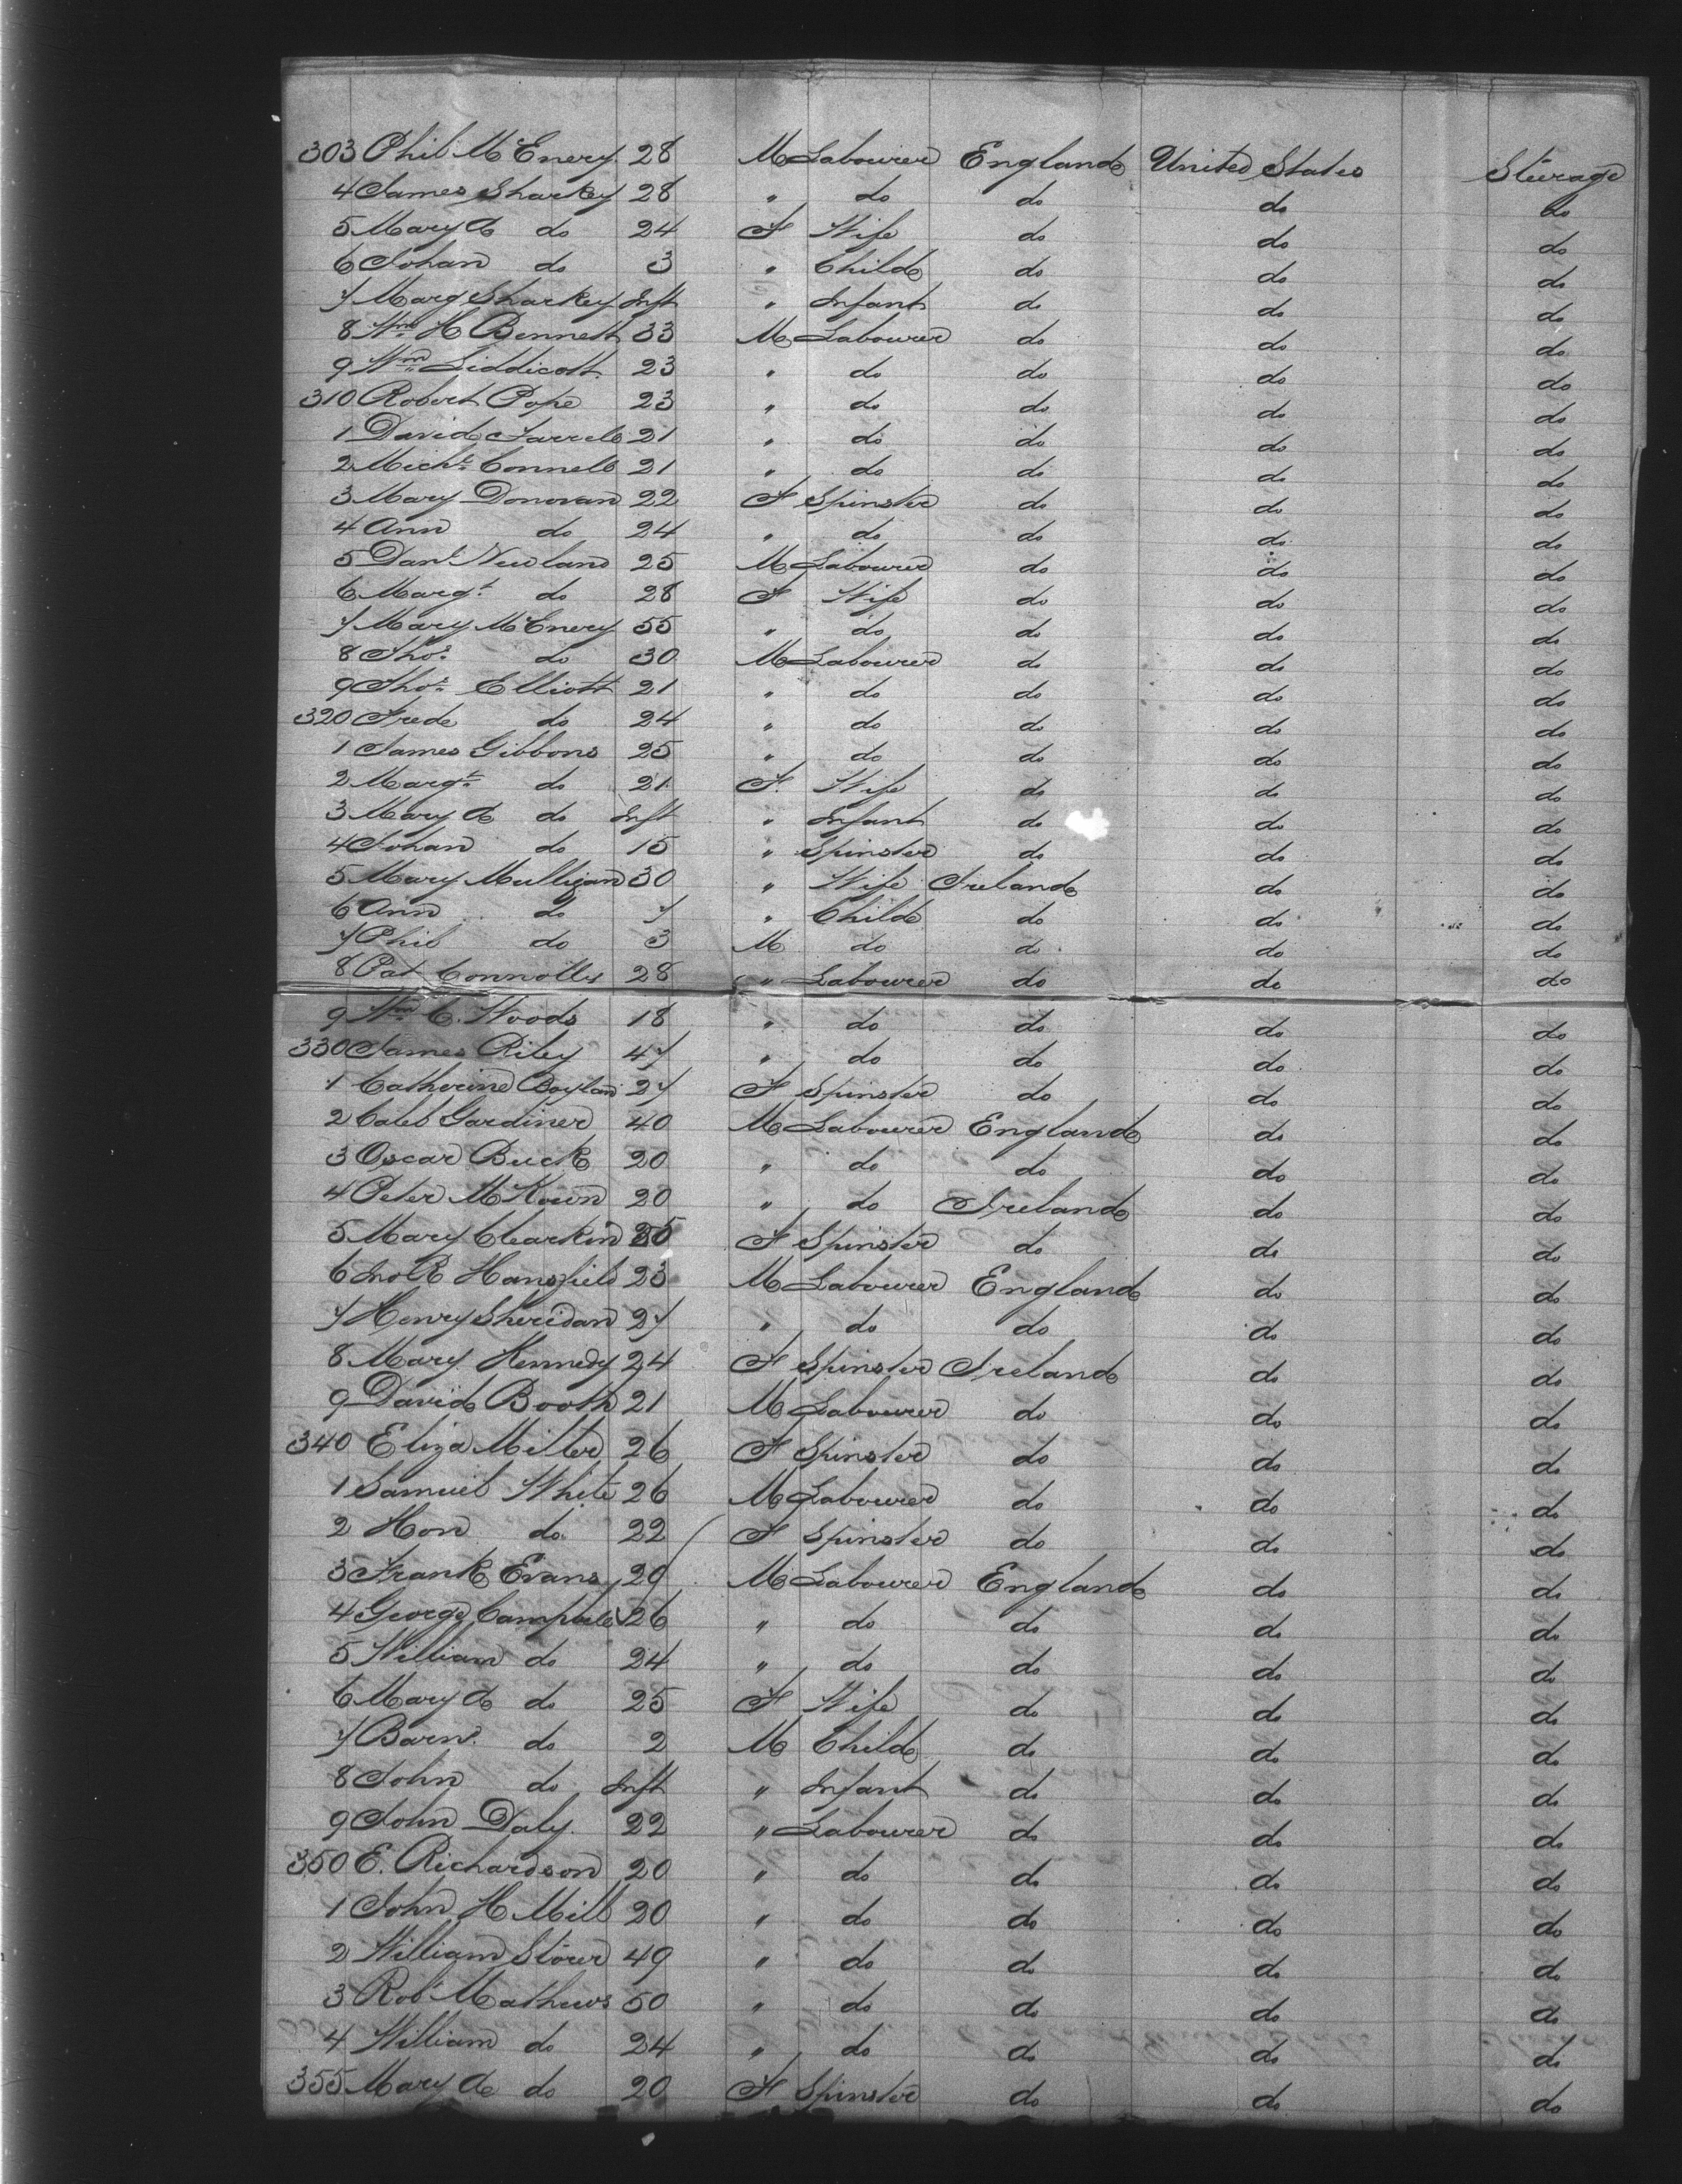 303 Phil McEnery 28 M Labourer England United States Steerage
4 James Sharkey 28 " do do do do
5 Mary A do 24 F Wife do do do
6 Johan do 3 " Child do do do
7 Marg Sharkey Inft " Infant do do do
8 Wm H Bennett 33 M Labourer do do do
9 Wm Liddicott 23 " do do do do
310 Robert Pope 23 " do do do do
1 David Farrell 21 " do do do do
2 Michl Connell 21 " do do do do
3 Mary Donovan 22 F Spinster do do do
4 Ann do 24 " do do do do
5 Danl Newland 25 M Labourer do do do
6 Margt do 28 F Wife do do do
7 Mary McEnery 55 " do do do do
8 Thos do 30 M Labourer do do do
9 Thos Elliott 21 " do do do do
320 Fredk do 24 " do do do do
1 James Gibbons 25 " do do do do
2 Margt do 21 F Wife do do do
3 Mary A do Inft " Infant do do do
4 Johan do 15 " Spinster do do do
5 Mary Mulligan 30 " Wife Ireland do do
6 Ann do 7 " Child do do do
7 Phil do 3 M do do do do
8 Pat Connolly 28 " Labourer do do do
9 Wm C. Woods 18 " do do do do
330 James Riley 47 " do do do do
1 Catherine Boylan 27 F Spinster do do do
2 Caleb Gardiner 40 M Labourer England do do
3 Oscar Buck 20 " do do do do
4 Peter McKown 20 " do Ireland do do
5 Mary Clearkin F Spinster do do do
6 Jno R Hansfield 23 M Labourer England do do
7 Henry Sheridan 27 " do do do do
8 Mary Kennedy 24 F Spinster Ireland do do
9 David Booth 21 M Labourer do do do
340 Eliza Miller 26 F Spinster do do do
1 Samuel White 26 M Labourer do do do
2 Hon do 22 F Spinster do do do
3 Frank Evans 20 M Labourer England do do
4 George Campbell 26 " do do do do
5 William do 24 " do do do do
6 Mary A do 25 F Wife do do do
7 Barnd do 2 M Child do do do
8 John do Inft " Infant do do do
9 John Daly 22 " Labourer do do do
350 E. Richardson 20 " do do do do
1 John H Mill 20 " do do do do
2 William Storer 49 " do do do do
3 Robt Mathews 50 " do do do do
4 William do 24 " do do do do
355 Mary A do 20 F Spinster do do do